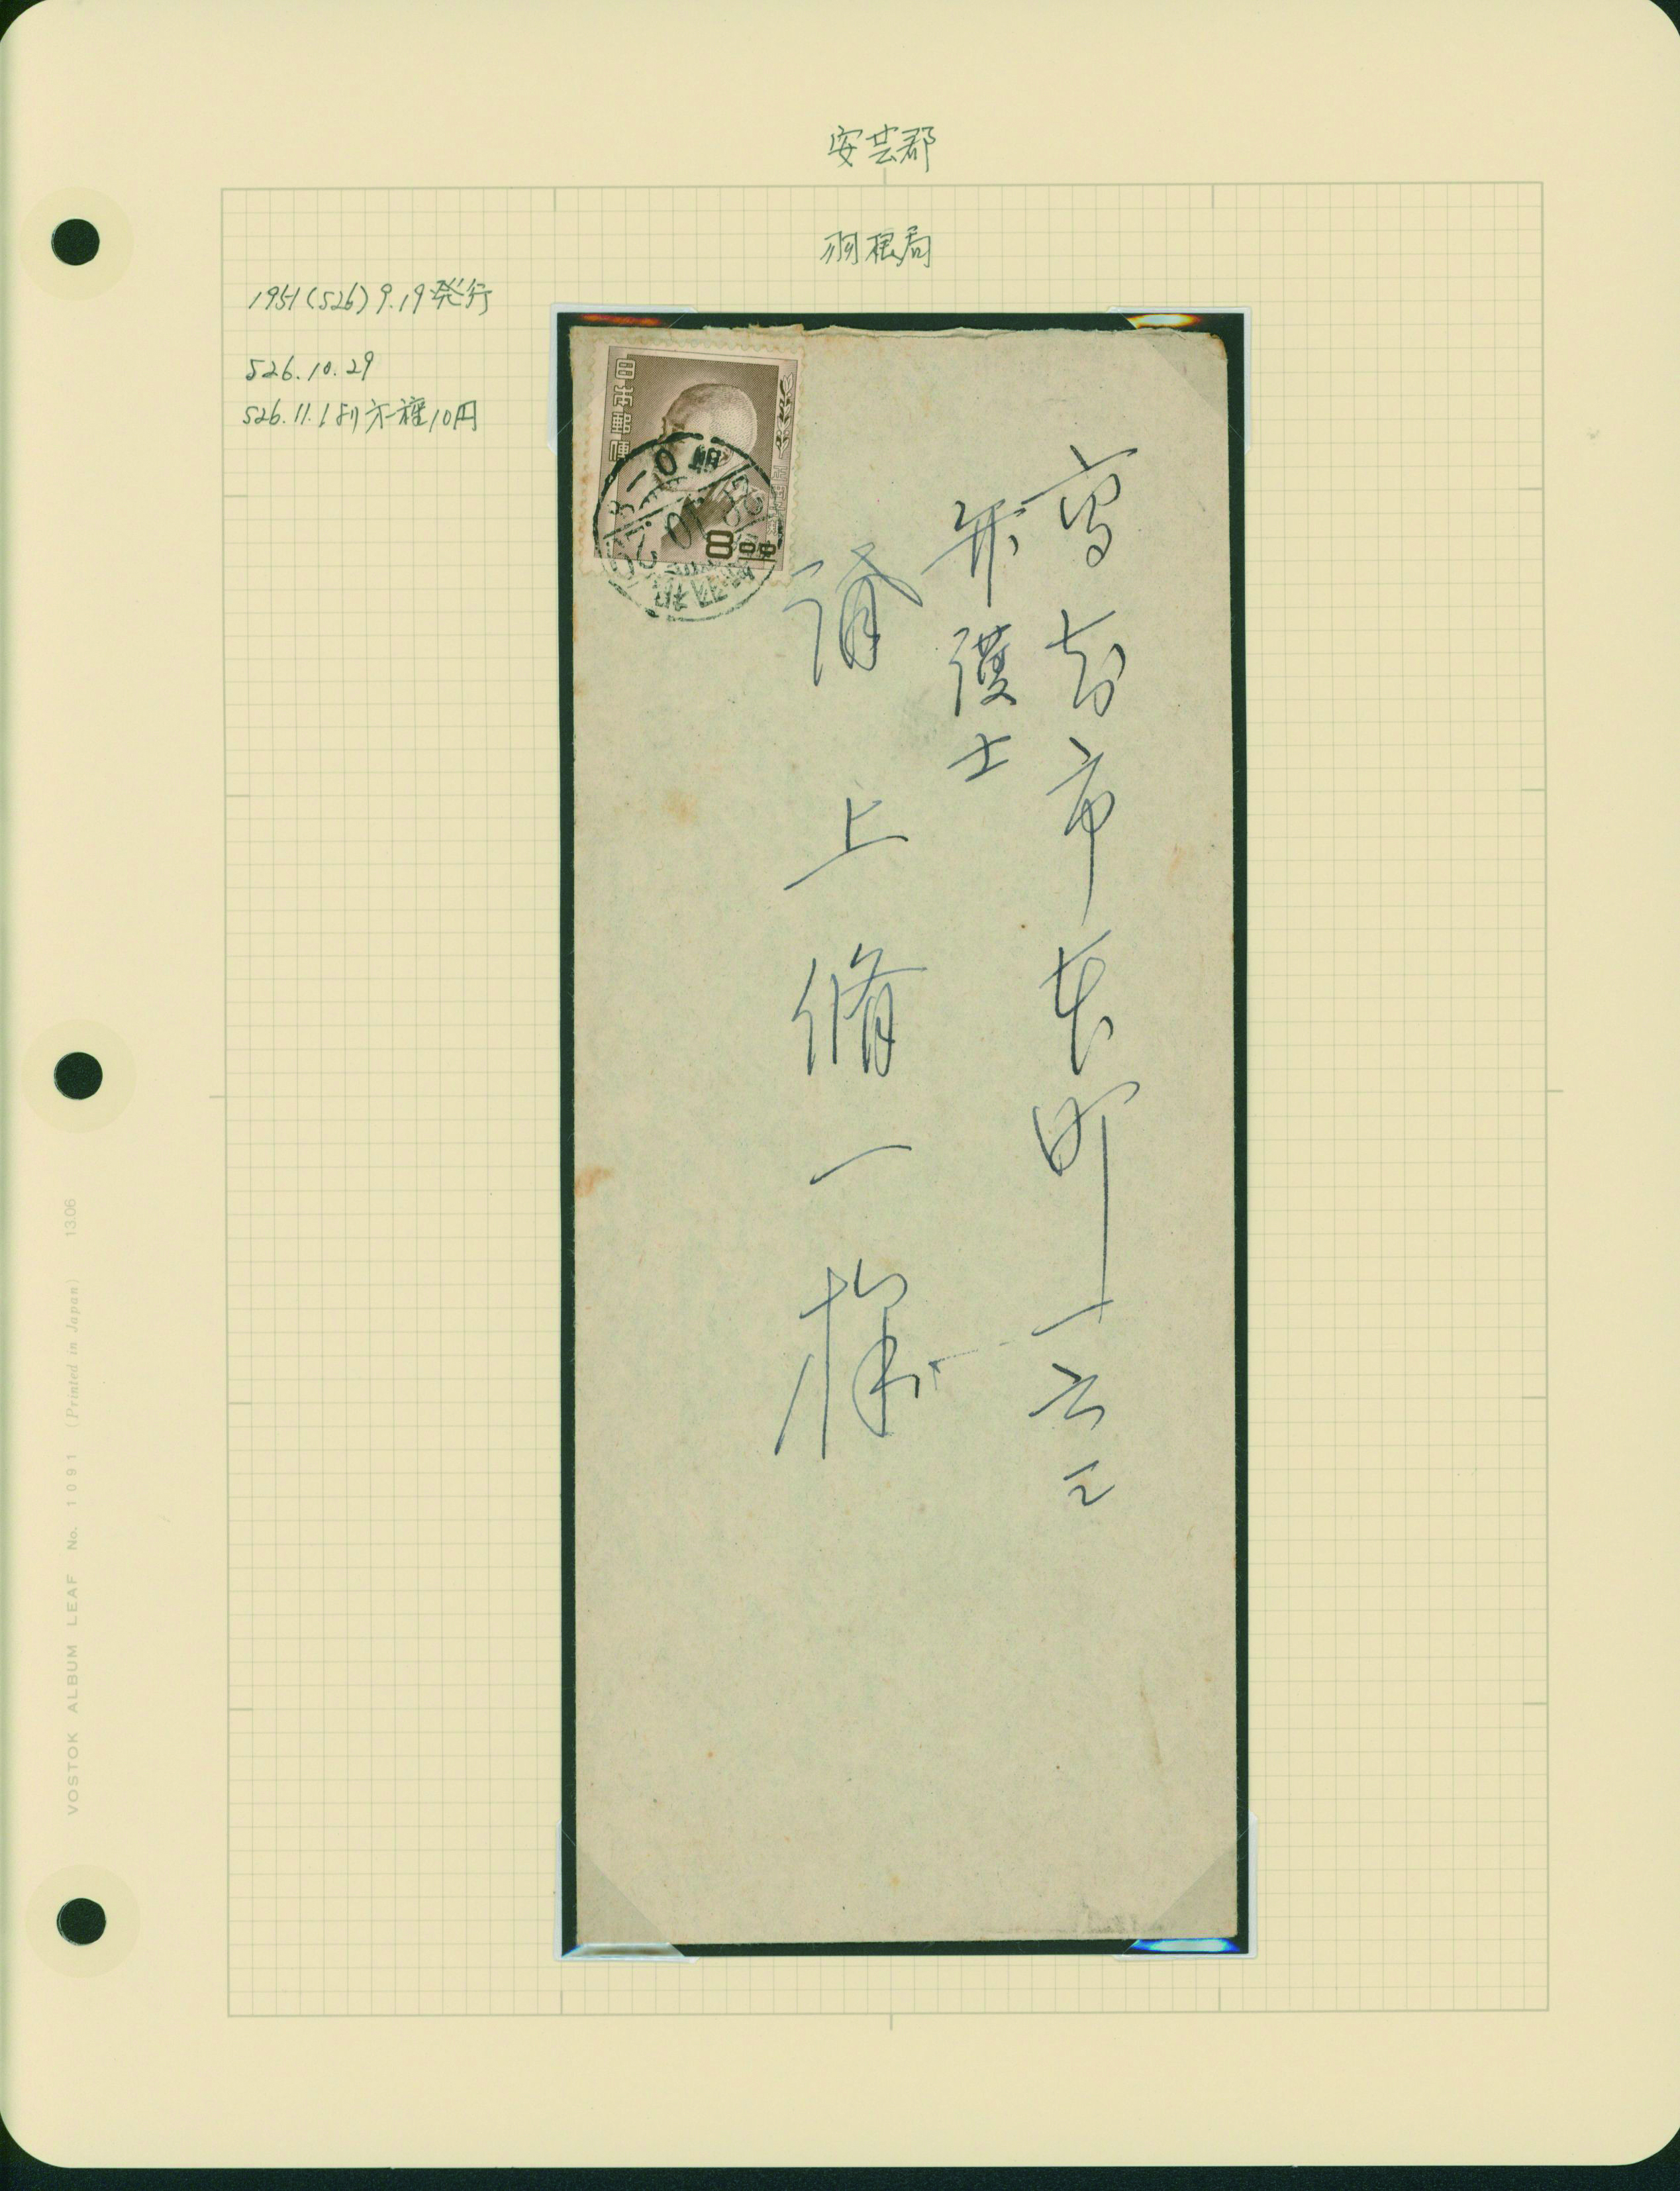 安芸郡
羽根局
1951(S26)9.19発行
S26.10.29
S26.11.1より方一種10円
日本郵便
8.00
高知市本町一六二
弁護士
上
脩一様
VOSTOK ALBUM LEAF No. 1091 (Printed in Japan) 13.06